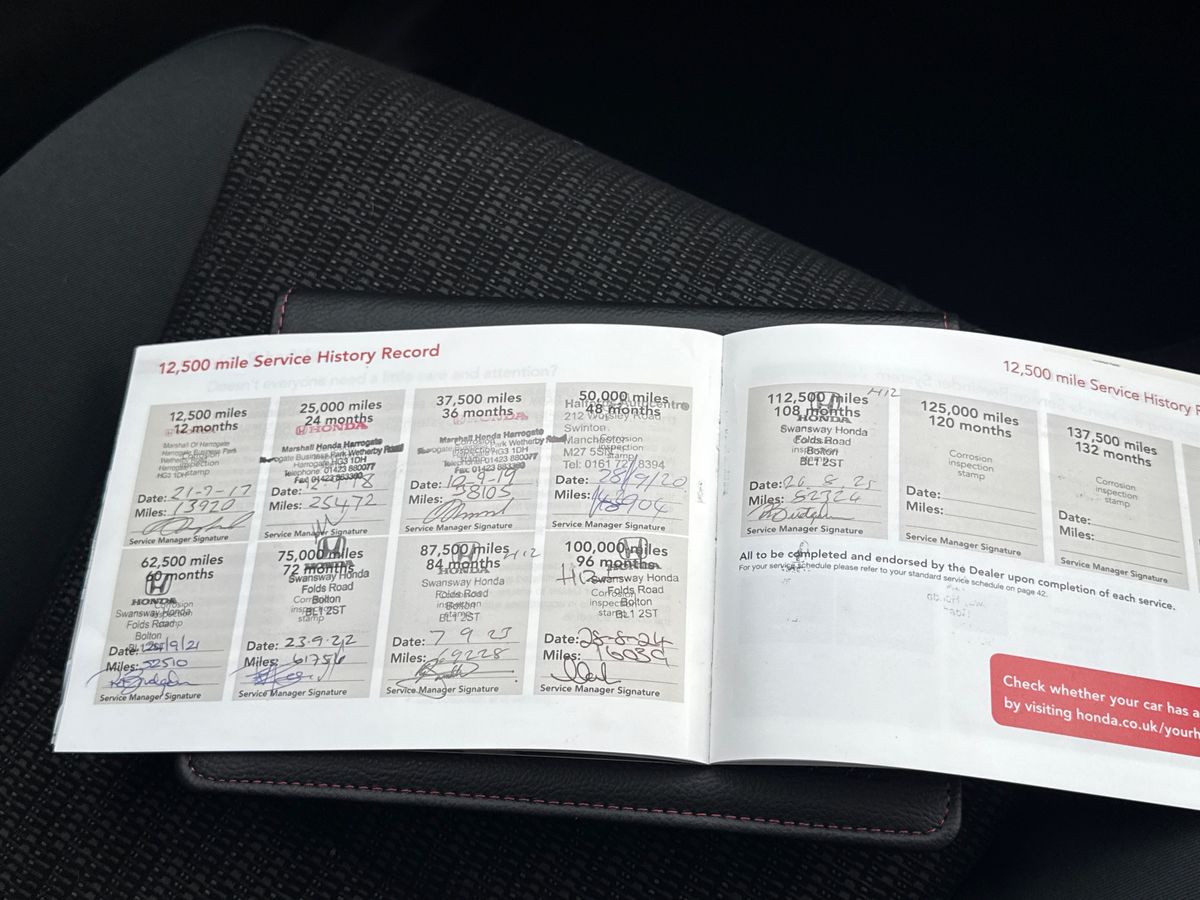 12,500 mile Service History Record
12,500 miles
12 months
Marshall Of Harrogate
HG3 1DH
Corrosion
inspection
stamp
Date: 21-7-17
Miles: 13920
Service Manager Signature
25,000 miles
24 months
HONDA
Marshall Honda Harrogate
Harrogate Business Park Wetherby Road
Harrogate HG3 1DH
Telephone: 01423 880077
Date:
Miles: 25472
Service Manager Signature
37,500 miles
36 months
HONDA
Marshall Honda Harrogate
Park Wetherby Road
HG3 1DH
01423 880077
Date: 12-9-19
Miles: 38105
Service Manager Signature
50,000 miles
48 months
212 Worsley Road
Swinton
Manchester
M27 5SN
Corrosion
inspection
stamp
Date: 28/9/20
Miles:
Service Manager Signature
62,500 miles
60 months
HONDA
Corrosion
Swansway Honda
Folds Road
Bolton
BL1 2ST
Date: /9/21
Miles: 52510
Service Manager Signature
75,000 miles
72 months
Swansway Honda
Folds Road
Bolton
BL1 2ST
stamp
Date: 23.9.22
Miles: 61756
Service Manager Signature
87,500 miles
84 months
H12
HONDA
Swansway Honda
Folds Road
Bolton
BL1 2ST
Date: 7 9 23
Miles: 69228
Service Manager Signature
100,000 miles
96 months
H12
Swansway Honda
Folds Road
Bolton
BL1 2ST
Date: 28-8-24
Miles: 76039
Service Manager Signature
12,500 mile Service History R
112,500 miles
108 months
H12
HONDA
Swansway Honda
Folds Road
Bolton
BL1 2ST
Date: 26.8.25
Miles: 82324
Service Manager Signature
125,000 miles
120 months
Corrosion
inspection
stamp
Date:
Miles:
Service Manager Signature
137,500 miles
132 months
Corrosion
inspection
stamp
Date:
Miles:
Service Manager Signature
All to be completed and endorsed by the Dealer upon completion of each service.
For your service schedule please refer to your standard service schedule on page 42.
Check whether your car has a
by visiting honda.co.uk/yourh